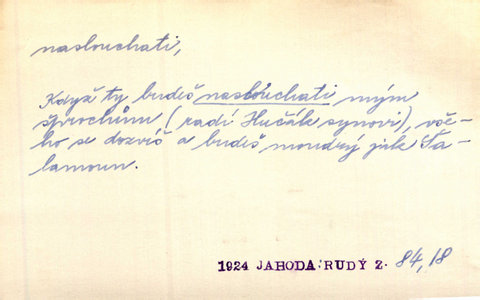 naslouchati,
Když ty budeš naslouchati mým
špvochům (radí Hučák synovi), vše-
ho se dozvíš a budeš moudrý jak Ša-
lamoun.
1924 JAHODA: RUDÝ Z. 84,18